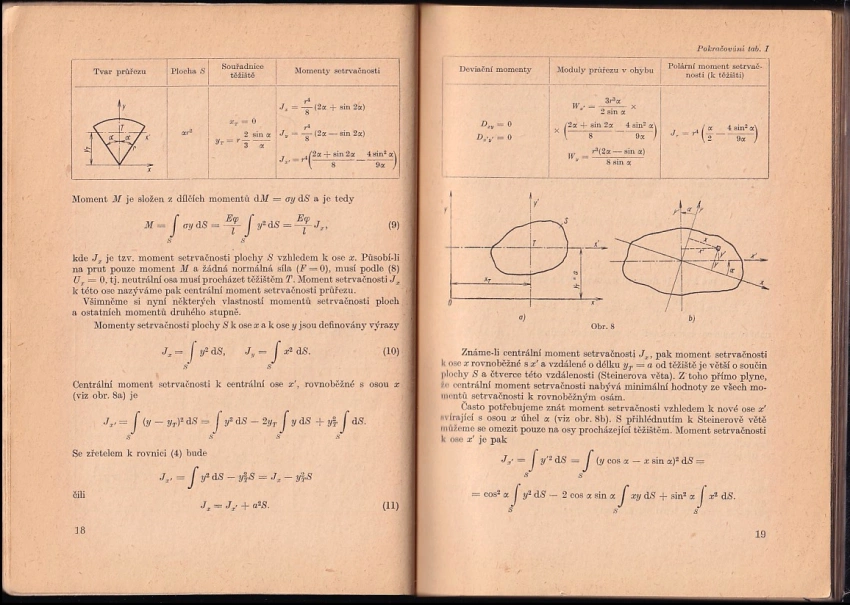 Tvar průřezu | Plocha S | Souřadnice těžiště | Momenty setrvačnosti
y
T
x'
α α
r
y_T
x
αr²
x_T = 0
y_T = r 2/3 sin α/α
J_x = r⁴/8 (2α + sin 2α)
J_y = r⁴/8 (2α — sin 2α)
J_x' = r⁴(2α + sin 2α/8 — 4 sin² α/9α)
Moment M je složen z dílčích momentů dM = σy dS a je tedy
M = ∫_S σy dS = Eφ/l ∫_S y² dS = Eφ/l J_x, (9)
kde J_x je tzv. moment setrvačnosti plochy S vzhledem k ose x. Působí-li
na prut pouze moment M a žádná normálná síla (F = 0), musí podle (8)
U_x = 0, tj. neutrální osa musí procházet těžištěm T. Moment setrvačnosti J_x
k této ose nazýváme pak centrální moment setrvačnosti průřezu.
Všimněme si nyní některých vlastností momentů setrvačnosti ploch
a ostatních momentů druhého stupně.
Momenty setrvačnosti plochy S k ose x a k ose y jsou definovány výrazy
J_x = ∫_S y² dS, J_y = ∫_S x² dS. (10)
Centrální moment setrvačnosti k centrální ose x', rovnoběžné s osou x
(viz obr. 8a) je
J_x' = ∫_S (y — y_T)² dS = ∫_S y² dS — 2y_T ∫_S y dS + y_T² ∫_S dS.
Se zřetelem k rovnici (4) bude
J_x' = ∫_S y² dS — y_T²S = J_x — y_T²S
čili
J_x = J_x' + a²S. (11)
18
Pokračování tab. I
Deviační momenty | Moduly průřezu v ohybu | Polární moment setrvač-
nosti (k těžišti)
D_xy = 0
D_x'y' = 0
W_x' = 3r³α/2 sin α ×
× (2α + sin 2α/8 — 4 sin² α/9α)
W_y = r³(2α — sin α)/8 sin α
J_r = r⁴ (α/2 — 4 sin² α/9α)
y y' S
T x'
x_T
y_T = a
0 x
a)
y' α y
x
x'
y'
y
α
x'
x
b)
Obr. 8
Známe-li centrální moment setrvačnosti J_x', pak moment setrvačnosti
k ose x rovnoběžné s x' a vzdálené o délku y_T = a od těžiště je větší o součin
plochy S a čtverce této vzdálenosti (Steinerova věta). Z toho přímo plyne,
že centrální moment setrvačnosti nabývá minimální hodnoty ze všech mo-
mentů setrvačnosti k rovnoběžným osám.
Často potřebujeme znát moment setrvačnosti vzhledem k nové ose x'
svírající s osou x úhel α (viz obr. 8b). S přihlédnutím k Steinerově větě
můžeme se omezit pouze na osy procházející těžištěm. Moment setrvačnosti
k ose x' je pak
J_x' = ∫_S y'² dS = ∫_S (y cos α — x sin α)² dS =
= cos² α ∫_S y² dS — 2 cos α sin α ∫_S xy dS + sin² α ∫_S x² dS.
19